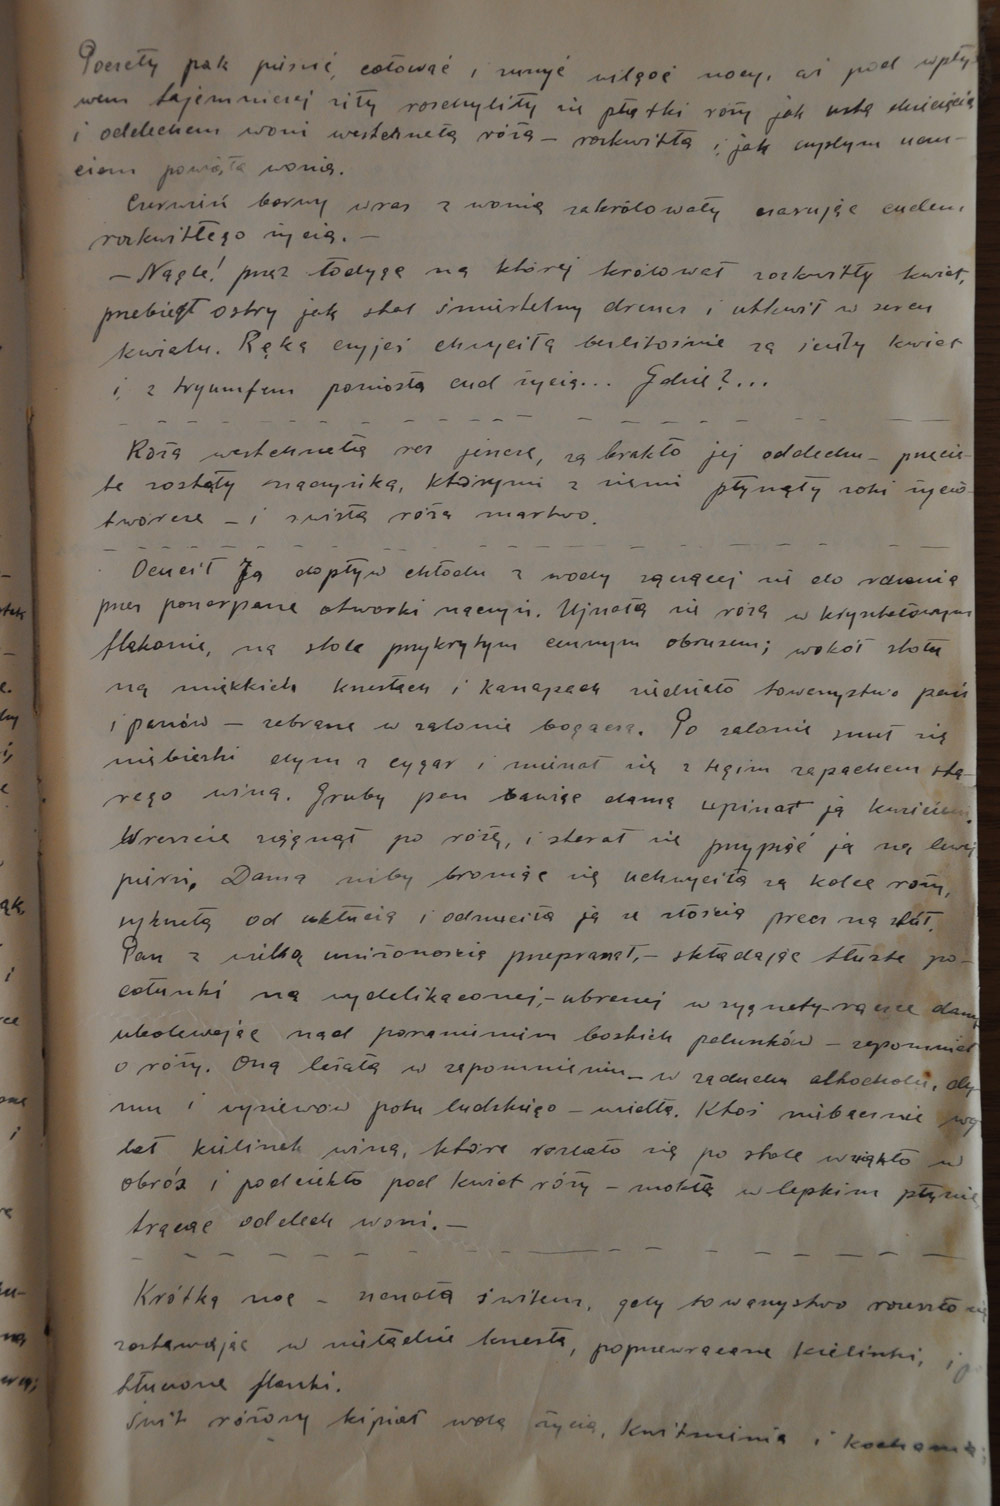 Poczęły pąk pieścić, całować i sunyć wilgoć nocy, aż pod wpły-
wem tajemniczej siły rozchyliły się płatki róży jak usta dziecięcia
i oddechem woni westchnęła róża – rozkwitła i jak ciepłym
powiała wonią.
Czerwień barwy wraz z wonią zakrólowały czarując cudem
rozkwitłego życia. –
– Nagle! przez łodygę na której królował rozkwitły kwiat,
przebiegł ostry jak stal śmiertelny dreszcz i utkwił w sercu
kwiatu. Ręka czyjeś chwyciła bezlitośnie za kwiat
i z tryumfem poniosła cud życia... Gdzie?...
Róża westchnęła raz jeszcze, zabrakło jej oddechu – przecię-
te zostały naczyńka, którymi z ziemi płynęły soki życio-
twórcze – i zwisła róża martwo.
Ocucił Ją dopływ chłodu z wody sączącej się do rdzenia
przez poszarpane otworki naczyń. Ujrzała się róża w kryształowym
flakonie, na stole przykrytym cennym obrusem; wokół stołu
na miękkich krzesłach i kanapach siedziało towarzystwo pań
i panów – zebrane w salonie bogacza. Po salonie snuł się
niebieski dym z cygar i mieszał się z tęgim zapachem sta-
rego wina. Gruby pan bawiąc damę upinał ją kwieciem.
Wreszcie sięgnął po różę, i starał się przypiąć ją na lewej
piersi. Dama niby broniąc się uchwyciła za kolce róży,
syknęła od ukłucia i odrzuciła ją ze złością precz na stół.
Pan z wielką uniżonością przepraszał, – składając tłuste po-
całunki na wydelikaconej, – ubranej w sygnety rączce damy
ubolewając nad poranieniem boskich paluszków – zapomniał
o róży. Ona leżała w zapomnieniu – w zaduchu alkoholu, dy-
mu i wyziewów potu ludzkiego – więdła. Ktoś niebacznie wy-
lał kieliszek wina, które rozlało się po stole wsiąkło w
obrus i podciekło pod kwiat róży – mokła w lepkim płynie
tracąc oddech woni. –
Krótka noc – nastała świtem, gdy towarzystwo rozeszło się
zostawiając w nieładzie krzesła, poprzewracane kieliszki, i po
tłuczone flaszki.
Świt różowy kipiał wolą życia, kwitnienia i kochania;